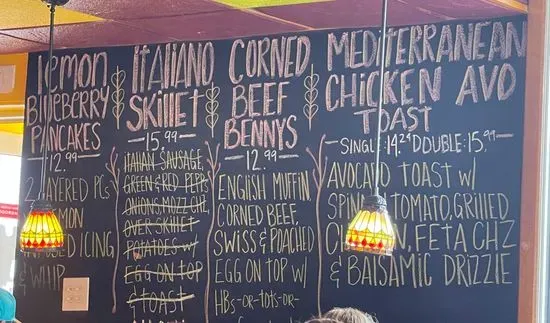 lemon
BlUEBERRY
PANCAKES
12.99
2 LAYERED PCs
ICING
& WHIP
iTALiANO
SKillET
15.99
ITALIAN SAUSAGE,
GREEN & RED PEPPs
ONIONS, MOZZ CHZ,
OVER SKILLET
POTATOES W/
EGG ON TOP
& TOAST
CORNED
BEEF
BENNYS
12.99
ENGlISH MUFFIN
CORNED BEEF,
SWISS & POACHED
EGG ON TOP W/
HBs-OR-TOTs-OR-
MEDITERRANEAN
CHICKEN AVO
TOAST
SINGLE: 14.29 DOUBLE: 15.99
AVOCADO TOAST W/
TOMATO, GRIllED
FETA CHZ
& BAlSAMIC DRIZZlE